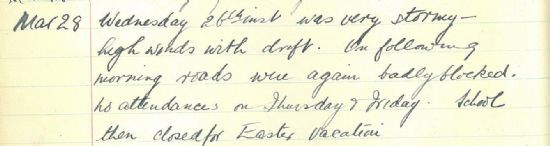 Mar 28 Wednesday 26th inst was very stormy –
high winds with drift. On following
morning roads were again badly blocked.
No attendances on Thursday & Friday. School
then closed for Easter Vacation